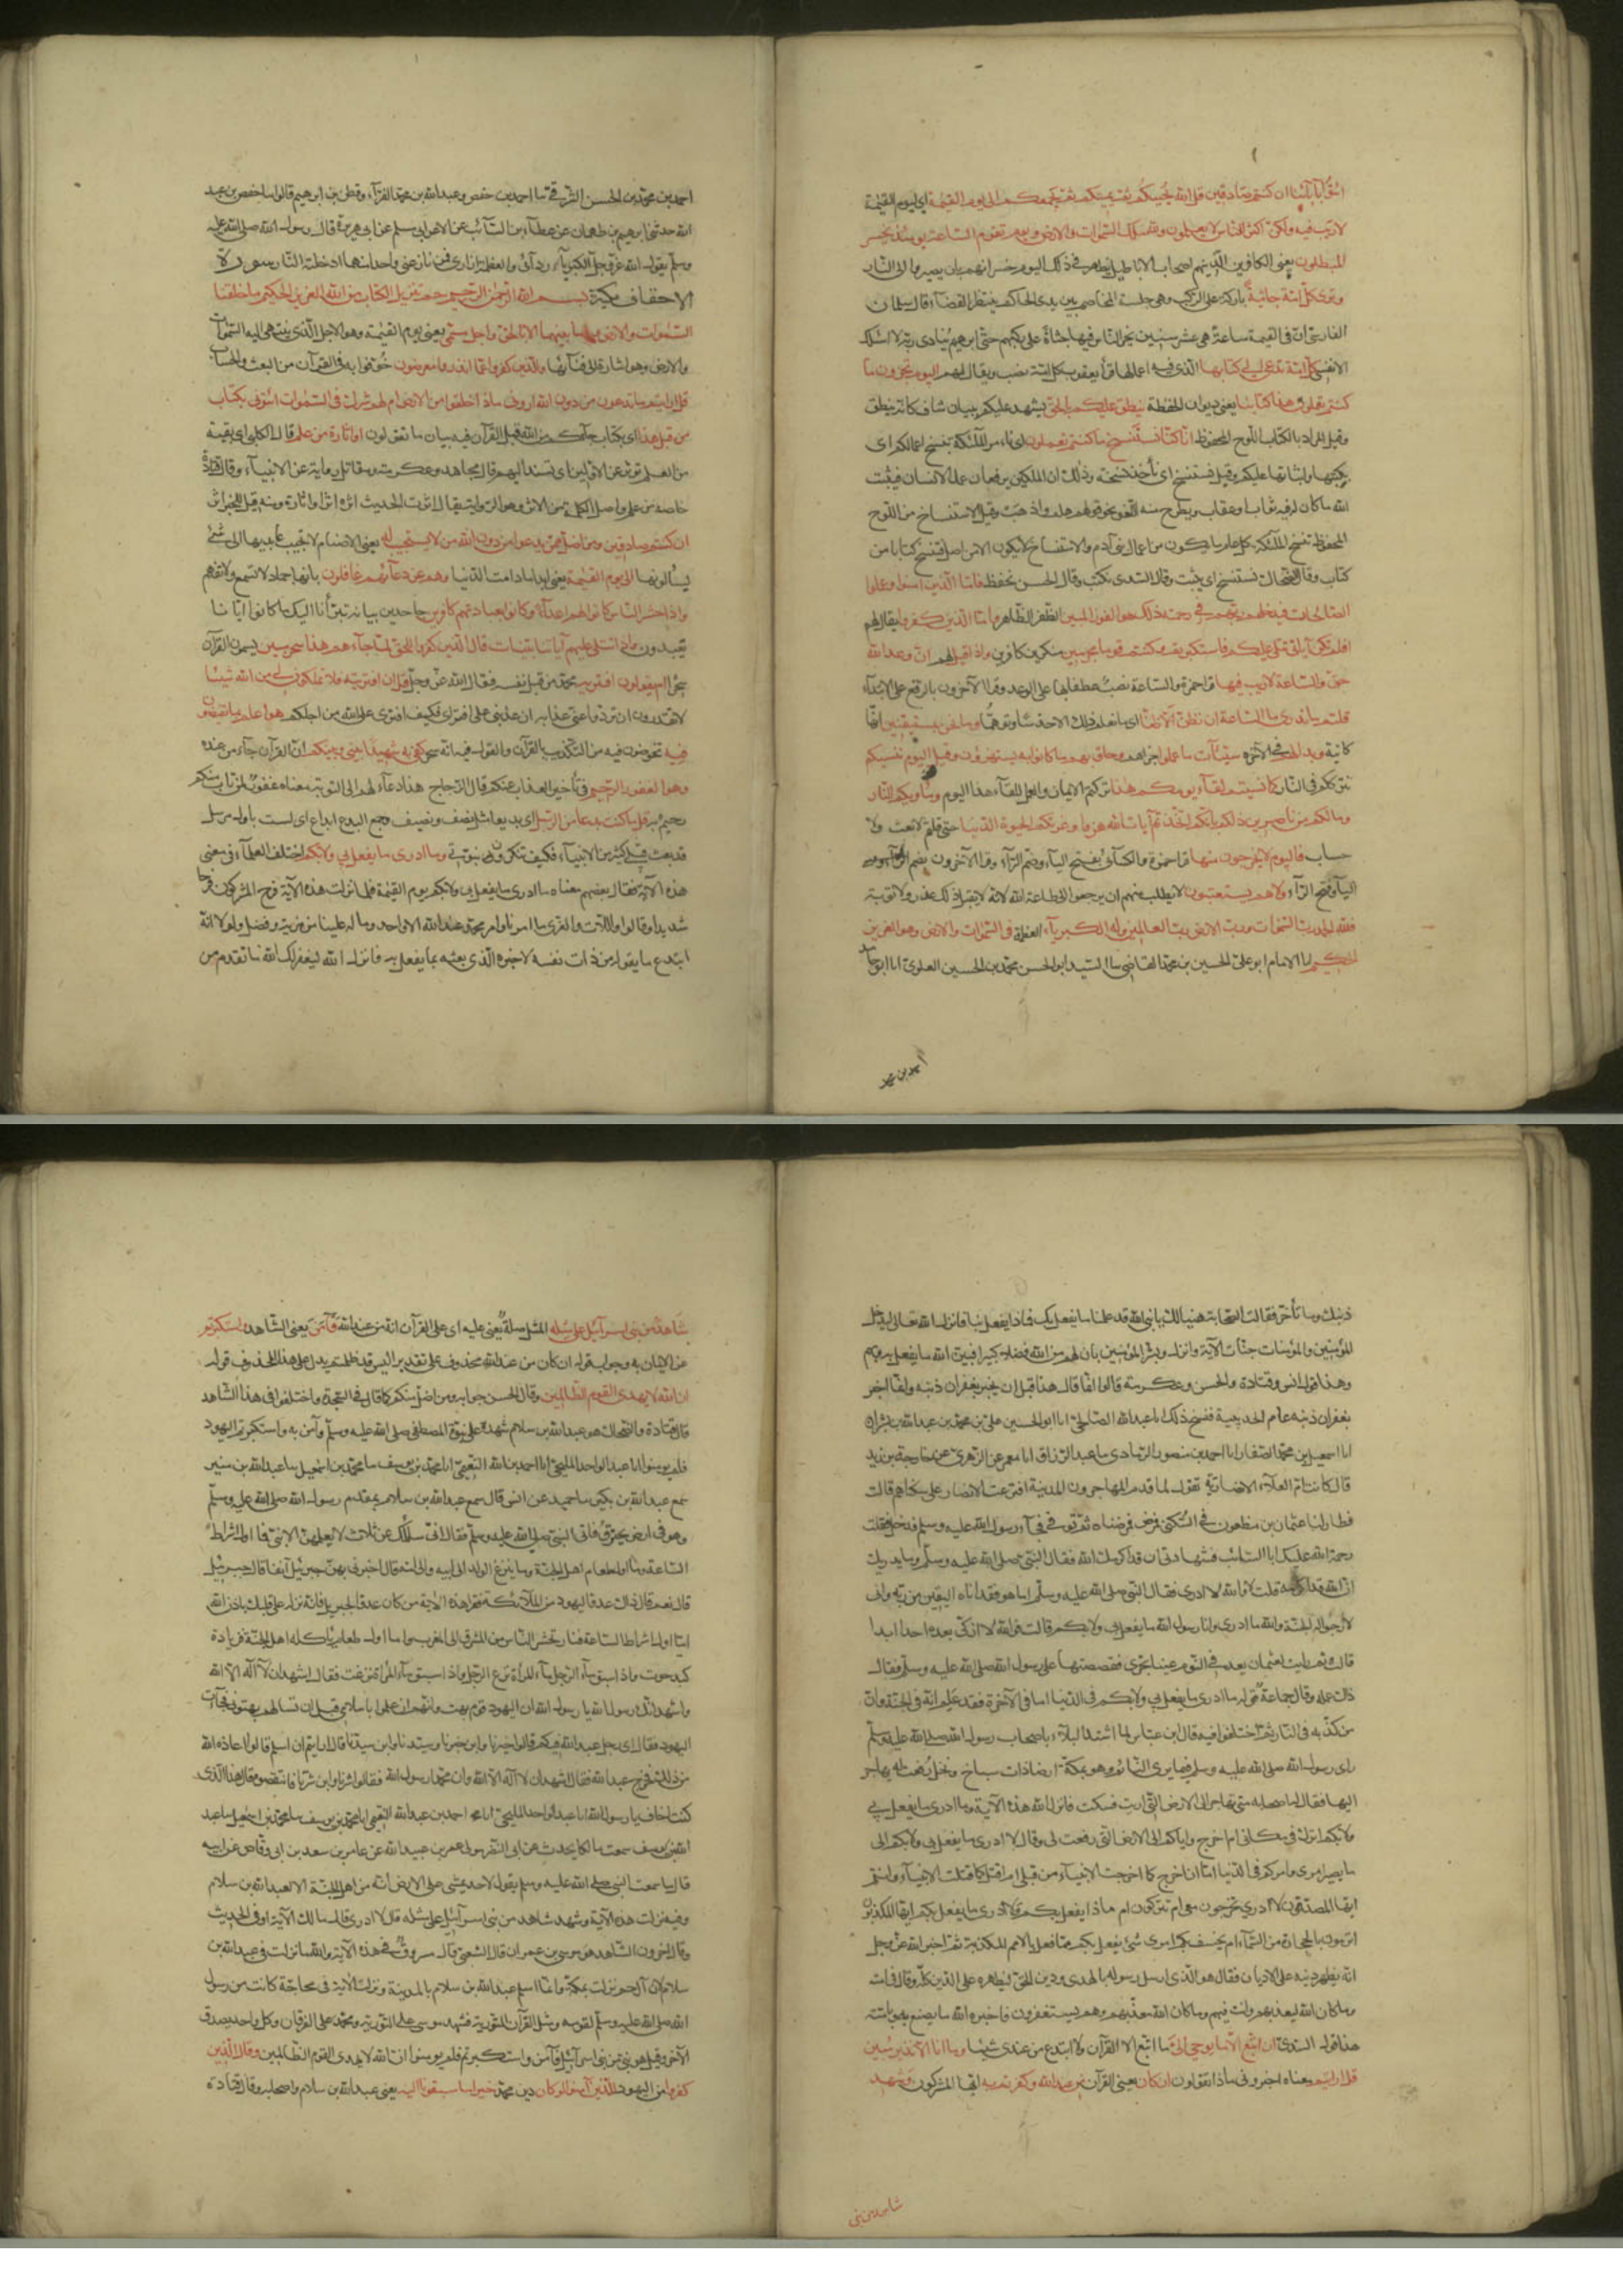 ائتوا بآبائنا ان كنتم صادقين قل الله يحييكم ثم يميتكم ثم يجمعكم الى يوم القيمة اي ليوم القيمة
لا ريب فيه ولكن اكثر الناس لا يعلمون ولله ملك السموات والارض ويوم تقوم الساعة يومئذ يخسر
المبطلون يعني الكافرين الذينهم اصحاب الاباطيل يظهر في ذلك اليوم خسرانهم بان يصيروا الى النار
وترى كل امة جاثية باركة على الركب وهي جلسة المخاصم بين يدي الحاكم ينتظر القضاء قال سلمان
الفارسي ان في القيمة ساعة هي عشر سنين يخر الناس فيها جثاة على ركبهم حتى ابرهيم ينادي ربه لا اسئلك
الا نفسي كل امة تدعى الى كتابها الذي فيه اعمالها قرأ يعقوب كل امة نصب ويقال لهم اليوم تجزون ما
كنتم تعملون هذا كتابنا يعني ديوان الحفظة ينطق عليكم بالحق يشهد عليكم ببيان شاف كانه ينطق
وقيل المراد بالكتاب اللوح المحفوظ انا كنا نستنسخ ما كنتم تعملون اي نامر الملئكة بنسخ اعمالكم اي
بكتبها واثباتها عليكم وقيل نستنسخ اي نأخذ نسخته وذلك ان الملكين يرفعان عمل الانسان فيثبت
الله ما كان له فيه ثواب او عقاب ويطرح منه اللغو نحو قولهم هلم واذهب وقيل الاستنساخ من اللوح
المحفوظ تنسخ الملئكة كل عام ما يكون من اعمال بني آدم والاستنساخ لا يكون الا من اصل فينسخ كتابا من
كتاب وقال الضحاك نستنسخ اي يثبت وقال السدي نكتب وقال الحسن نحفظ فاما الذين امنوا وعملوا
الصالحات فيدخلهم ربهم في رحمته ذلك هو الفوز المبين الظفر الظاهر واما الذين كفروا يقال لهم
افلم تكن آياتي تتلى عليكم فاستكبرتم وكنتم قوما مجرمين متكبرين كافرين واذا قيل لهم ان وعد الله
حق والساعة لا ريب فيها قرأ حمزة والساعة نصب عطفها على الوعد وقرأ الآخرون بالرفع على الابتداء
قلتم ما ندري ما الساعة ان نظن الا ظنا اي ما نعلم ذلك الا حدسا وتوهما وما نحن بمستيقنين انها
كائنة وبدا لهم في الآخرة سيئات ما عملوا اي جزاؤها وحاق بهم ما كانوا به يستهزؤن وقيل اليوم ننسيكم
نترككم في النار كما نسيتم لقاء يومكم هذا تركتم الايمان والعمل للقاء هذا اليوم ومأويكم النار
وما لكم من ناصرين ذلكم بانكم اتخذتم آيات الله هزوا وغرتكم الحيوة الدنيا حتى قلتم لا بعث ولا
حساب فاليوم لا يخرجون منها قرأ حمزة والكسائي بفتح الياء وضم الراء وقرأ الآخرون بضم
الياء وفتح الراء ولا هم يستعتبون لا يطلب منهم ان يرجعوا الى طاعة الله لانه لا يقبل ذلك عذر ولا توبة
فلله الحمد رب السموات ورب الارض رب العالمين وله الكبرياء العظمة في السموات والارض وهو العزيز
الحكيم انا الامام ابو علي الحسين بن محمد القاضي سا السيد ابو الحسن محمد بن الحسين العلوي انا ابو حامد
احمد بن محمد
احمد بن محمد بن الحسن الشرقي سا احمد بن حفص وعبدالله بن محمد الفراء وقطن بن ابرهيم قالوا سا حفص بن عبد
الله حدثني ابرهيم بن طهمان عن عطاء بن السائب عن الاغر ابي مسلم عن ابي هريرة قال قال رسول الله صلى الله عليه
وسلم يقول الله عز وجل الكبرياء ردائي والعظمة ازاري فمن نازعني واحدا منهما ادخلته النار سورة
الاحقاف مكية بسم الله الرحمن الرحيم حم تنزيل الكتاب من الله العزيز الحكيم ما خلقنا
السموات والارض وما بينهما الا بالحق واجل مسمى يعني يوم القيمة وهو الاجل الذي ينتهي اليه السموات
والارض وهو اشارة الى فنائها والذين كفروا عما انذروا معرضون خوفوا به في القرآن من البعث والحساب
قل ارايتم ما تدعون من دون الله اروني ماذا خلقوا من الارض ام لهم شرك في السموات ائتوني بكتاب
من قبل هذا اي بكتاب جاءكم من الله قبل القرآن فيه بيان ما تقولون او اثارة من علم قال الكلبي اي بقية
من العلم تؤثر عن الاولين اي تسند اليهم قال مجاهد وعكرمة ومقاتل رواية عن الانبياء وقال قتادة
خاصة من علم واصل الكلمة من الاثر وهو الرواية يقال اثرت الحديث اثره اثرا واثارة ومنه قيل للخبر اثر
ان كنتم صادقين ومن اضل ممن يدعوا من دون الله من لا يستجيب له يعني الاصنام لا تجيب عابديها الى شئ
يسألونها الى يوم القيمة يعني ابدا ما دامت الدنيا وهم عن دعائهم غافلون بانها جماد لا تسمع ولا تفهم
واذا حشر الناس كانوا لهم اعداء وكانوا بعبادتهم كافرين جاحدين بيانه تبرأنا اليك ما كانوا ايانا
يعبدون واذا تتلى عليهم آياتنا بينات قال الذين كفروا للحق لما جاءهم هذا سحر مبين يسمون القرآن
سحرا ام يقولون افتريه محمد من قبل نفسه فقال الله عز وجل قل ان افتريته فلا تملكون لي من الله شيئا
لا تقدرون ان تردوا عني عذابه ان عذبني على افترائي فكيف افترى على الله من اجلكم هو اعلم بما تفيضون
فيه تخوضون فيه من التكذيب بالقرآن والقول فيه انه سحر كفى به شهيدا بيني وبينكم ان القرآن جاء من عنده
وهو الغفور الرحيم في تأخير العذاب عنكم قال الزجاج هذا دعاء لهم الى التوبة معناه غفور لمن تاب منكم
رحيم به قل ما كنت بدعا من الرسل اي بديعا مثل نصف ونصيف وجمع البدع ابداع اي لست باول مرسل
قد بعث قبلي كثير من الانبياء فكيف تنكرون نبوتي وما ادرى ما يفعل بي ولا بكم اختلف العلماء في معنى
هذه الآية فقال بعضهم معناه ما ادرى ما يفعل بي ولا بكم يوم القيمة فلما نزلت هذه الآية فرح المشركون فرحا
شديدا وقالوا واللات والعزى ما امرنا وامر محمد عند الله الا واحد وما له علينا من مزية وفضل ولولا انه
ابتدع ما يقوله من ذات نفسه لاخبره الذي بعثه بما يفعل به فانزل الله ليغفر لك الله ما تقدم من
ذنبك وما تأخر فقالت الصحابة هنيئا لك يا نبي الله قد علمنا ما يفعل بك فماذا يفعل بنا فانزل الله تعالى ليدخل
المؤمنين والمؤمنات جنات الآية وانزل وبشر المؤمنين بان لهم من الله فضلا كبيرا فبين الله ما يفعل به وبهم
وهذا قول انس وقتادة والحسن وعكرمة قالوا انما قال هذا قبل ان يخبر بغفران ذنبه وانما اخبر
بغفران ذنبه عام الحديبية فنسخ ذلك انا عبدالله الصالحي انا ابو الحسين علي بن محمد بن عبدالله بن بشران
انا اسمعيل بن محمد الصفار انا احمد بن منصور الرمادي سا عبد الرزاق انا معمر عن الزهري عن خارجة بن زيد
قال كانت ام العلاء الانصارية تقول لما قدم المهاجرون المدينة اقترعت الانصار على سكناهم قالت
فطار لنا عثمان بن مظعون في السكنى فمرض فمرضناه ثم توفي فجاء رسول الله عليه وسلم فدخل فقلت
رحمة الله عليك ابا السائب فشهادتي ان قد اكرمك الله فقال النبي صلى الله عليه وسلم وما يدريك
ان الله قد اكرمه قلت لا والله لا ادرى فقال النبي صلى الله عليه وسلم اما هو فقد اتاه اليقين من ربه واني
لارجو له الجنة والله ما ادرى وانا رسول الله ما يفعل بي ولا بكم قالت فوالله لا ازكي بعده احدا ابدا
قالت ثم رايت لعثمان بعد في النوم عينا تجرى فقصصتها على رسول الله صلى الله عليه وسلم فقال
ذاك عمله وقال جماعة قوله ما ادرى ما يفعل بي ولا بكم في الدنيا اما في الآخرة فقد علم انه في الجنة وان
من كذبه في النار ثم اختلفوا فيه قال ابن عباس لما اشتد البلاء باصحاب رسول الله صلى الله عليه وسلم
راى رسول الله صلى الله عليه وسلم فيما يرى النائم وهو بمكة ارضا ذات سباخ ونخل رفعت له يهاجر
اليها فقال له اصحابه متى تهاجر الى الارض التي اريت فسكت فانزل الله هذه الآية وما ادرى ما يفعل بي
ولا بكم اترك في مكاني ام اخرج واياكم الى الارض التي رفعت لي وقال لا ادرى ما يفعل بي ولا بكم الى
ما يصير امرى وامركم في الدنيا اما انا اخرج كما اخرجت الانبياء من قبلي ام اقتل كما قتلت الانبياء وانتم
ايها المصدقون لا ادرى تخرجون معي ام تتركون ام ماذا يفعل بكم ولا ادرى ما يفعل بكم ايها المكذبون
اترمون بالحجارة من السماء ام يخسف بكم ام اي شئ يفعل بكم مما فعل بالامم المكذبة ثم اخبر الله عز وجل
انه يظهر دينه على الاديان فقال هو الذي ارسل رسوله بالهدى ودين الحق ليظهره على الدين كله وقال في امته
وما كان الله ليعذبهم وانت فيهم وما كان الله معذبهم وهم يستغفرون فاخبره الله ما يصنع به وبامته
هذا قول السدي ان اتبع الا ما يوحى الي ما اتبع الا القرآن ولا ابتدع من عندي شيئا وما انا الا نذير مبين
قل ارايتم معناه اخبروني ماذا تقولون ان كان يعني القرآن من عند الله وكفرتم به ايها المشركون وشهد
شاهد من بني
شاهد من بني اسرآئيل على مثله المثل صلة يعني عليه اي على القرآن انه من عند الله فآمن يعني الشاهد واستكبرتم
عن الايمان به وجواب قوله ان كان من عند الله محذوف على تقدير اليس قد ظلمتم يدل على هذا المحذوف قوله
ان الله لا يهدى القوم الظالمين وقال الحسن جوابه ومن اضل منكم كما قال في السجدة واختلفوا في هذا الشاهد
قال قتادة والضحاك هو عبدالله بن سلام شهد على نبوة المصطفى صلى الله عليه وسلم وآمن به واستكبرتم اليهود
فلم يؤمنوا انا عبد الواحد المليحي انا احمد بن عبد الله النعيمي انا محمد بن يوسف سا محمد بن اسمعيل سا عبدالله بن منير
سمع عبدالله بن بكير سا حميد عن انس قال سمع عبدالله بن سلام بمقدم رسول الله صلى الله عليه وسلم
وهو في ارض يحترف فاتى النبي صلى الله عليه وسلم فقال اني سائلك عن ثلاث لا يعلمهن الا نبي فما اول اشراط
الساعة وما اول طعام اهل الجنة وما ينزع الولد الى ابيه والى امه قال اخبرني بهن جبرئيل آنفا قال جبرئيل
قال نعم قال ذاك عدو اليهود من الملائكة فقرأ هذه الآية من كان عدوا لجبريل فانه نزله على قلبك باذن الله
اما اول اشراط الساعة فنار تحشر الناس من المشرق الى المغرب واما اول طعام يأكله اهل الجنة فزيادة
كبد حوت واذا سبق ماء الرجل ماء المرأة نزع الرجل واذا سبق ماء المرأة نزعت فقال اشهد ان لا اله الا الله
واشهد انك رسول الله يا رسول الله ان اليهود قوم بهت وانهم ان علموا باسلامي قبل ان تسالهم بهتوني فجاءت
اليهود فقال اي رجل عبدالله فيكم قالوا خيرنا وابن خيرنا وسيدنا وابن سيدنا قال ارايتم ان اسلم قالوا اعاذه الله
من ذلك فخرج عبدالله فقال اشهد ان لا اله الا الله وان محمدا رسول الله فقالوا شرنا وابن شرنا فانتقصوه قال هذا الذي
كنت اخاف يا رسول الله انا عبد الواحد المليحي انا احمد بن عبدالله النعيمي انا محمد بن يوسف سا محمد بن اسمعيل سا عبد
الله بن يوسف سمعت مالكا يحدث عن ابي النضر مولى عمر بن عبيد الله عن عامر بن سعد بن ابي وقاص عن ابيه
قال ما سمعت النبي صلى الله عليه وسلم يقول لاحد يمشي على الارض انه من اهل الجنة الا لعبدالله بن سلام
وفيه نزلت هذه الآية وشهد شاهد من بني اسرآئيل على مثله قال لا ادرى قال مالك الآية او في الحديث
وقال آخرون الشاهد هو موسى بن عمران قال الشعبي قال مسروق في هذه الآية والله ما نزلت في عبدالله بن
سلام لان آل حم نزلت بمكة وانما اسلم عبدالله بن سلام بالمدينة ونزلت الآية في محاجة كانت من رسول
الله صلى الله عليه وسلم لقومه ومثل القرآن التورية فشهد موسى على التورية ومحمد على الفرقان وكل واحد يصدق
الآخر وقيل هو نبي من بني اسرآئيل فآمن واستكبرتم فلم يؤمنوا ان الله لا يهدى القوم الظالمين وقال الذين
كفروا من اليهود للذين آمنوا لو كان دين محمد خيرا ما سبقونا اليه يعني عبدالله بن سلام واصحابه وقال قتادة